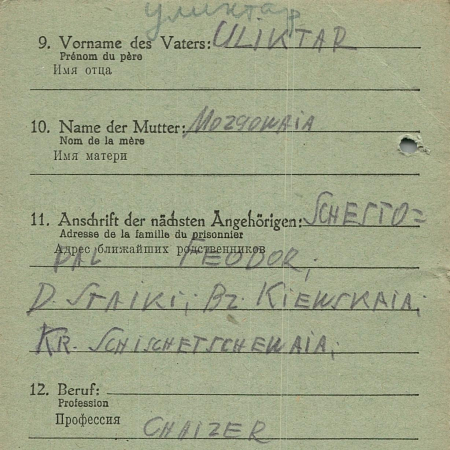 уликтар
9. Vorname des Vaters: ULIKTAR
Prénom du père
Имя отца
10. Name der Mutter: MOZGOWAIA
Nom de la mère
Имя матери
11. Anschrift der nächsten Angehörigen: SCHESTO=
Adresse de la famille du prisonnier
Адрес ближайших родственников
PAL FEODOR;
D. STAIKI; BZ. KIEWSKAIA;
KR. SCHISCHETSCHEWAIA;
12. Beruf:
Profession
Профессия
CHAIZER